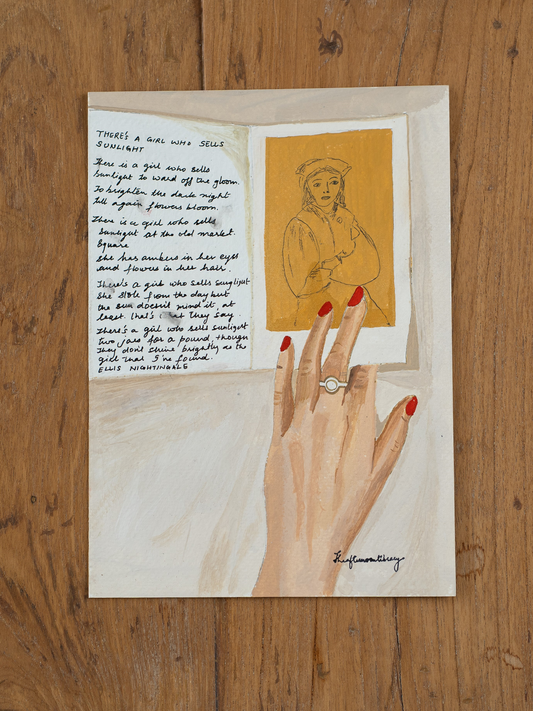 THERE'S A GIRL WHO SELLS
SUNLIGHT
There is a girl who sells
sunlight to ward off the gloom.
To brighten the dark night
till again flowers bloom.
There is a girl who sells
sunlight at the old market.
Square
she has ambers in her eyes
and flowers in her hair.
There's a girl who sells sunlight
She stole from the day but
the sun doesn't mind it, at
least that's what they say.
There's a girl who sells sunlight
two jars for a pound, though
they don't shine brightly as the
girl that I've found.
ELLIS NIGHTINGALE
Theafternoonlibrary